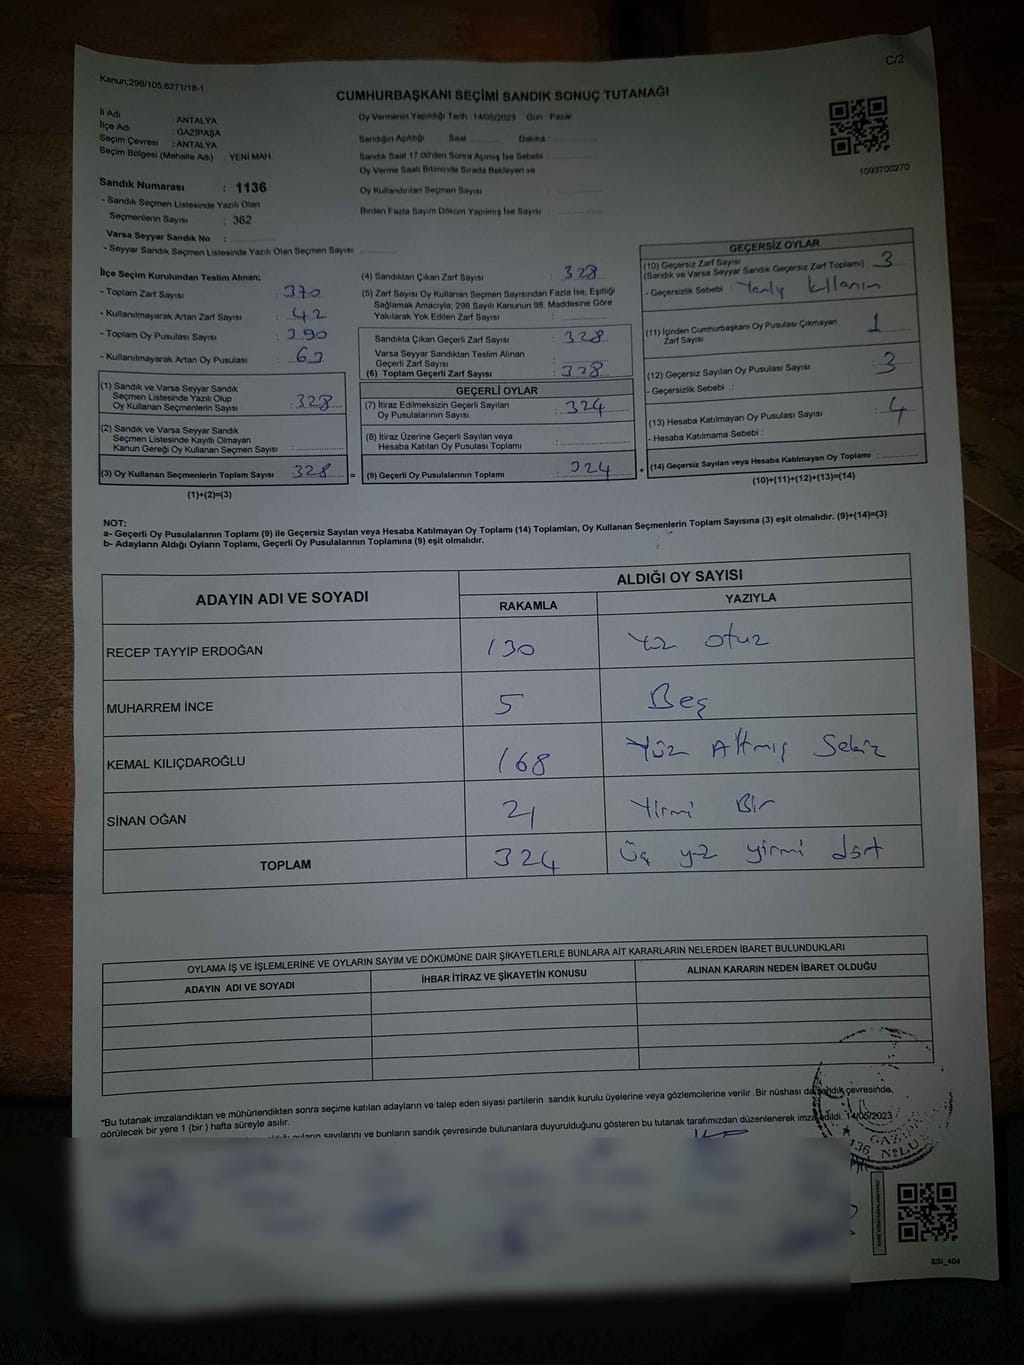 C/2
Kanun;298/105,6271/18-1
CUMHURBAŞKANI SEÇİMİ SANDIK SONUÇ TUTANAĞI
İl Adı : ANTALYA
İlçe Adı : GAZİPAŞA
Seçim Çevresi : ANTALYA
Seçim Bölgesi (Mahalle Adı) : YENİ MAH.
Sandık Numarası : 1136
- Sandık Seçmen Listesinde Yazılı Olan
Seçmenlerin Sayısı : 362
Varsa Seyyar Sandık No :
- Seyyar Sandık Seçmen Listesinde Yazılı Olan Seçmen Sayısı
Oy Vermenin Yapıldığı Tarih : 14/05/2023 Gün : Pazar
Sandığın Açıldığı Saat Dakika :
Sandık Saat 17.00'den Sonra Açımış İse Sebebi :
Oy Verme Saati Bitiminde Sırada Bekleyen ve
Oy Kullandırılan Seçmen Sayısı :
Birden Fazla Sayım Döküm Yapılmış İse Sayısı :
1093700270
İlçe Seçim Kurulundan Teslim Alınan;
- Toplam Zarf Sayısı : 370
- Kullanılmayarak Artan Zarf Sayısı : 42
- Toplam Oy Pusulası Sayısı : 390
- Kullanılmayarak Artan Oy Pusulası :
(1) Sandık ve Varsa Seyyar Sandık
Seçmen Listesinde Yazılı Olup
Oy Kullanan Seçmenlerin Sayısı : 328
(2) Sandık ve Varsa Seyyar Sandık
Seçmen Listesinde Kayıtlı Olmayan
Kanun Gereği Oy Kullanan Seçmen Sayısı :
(3) Oy Kullanan Seçmenlerin Toplam Sayısı : 328 =
(1)+(2)=(3)
(4) Sandıktan Çıkan Zarf Sayısı : 328
(5) Zarf Sayısı Oy Kullanan Seçmen Sayısından Fazla İse, Eşitliği
Sağlamak Amacıyla; 298 Sayılı Kanunun 98. Maddesine Göre
Yakılarak Yok Edilen Zarf Sayısı :
Sandıkta Çıkan Geçerli Zarf Sayısı : 328
Varsa Seyyar Sandıktan Teslim Alınan
Geçerli Zarf Sayısı :
(6) Toplam Geçerli Zarf Sayısı : 328
GEÇERLİ OYLAR
(7) İtiraz Edilmeksizin Geçerli Sayılan
Oy Pusulalarının Sayısı : 324
(8) İtiraz Üzerine Geçerli Sayılan veya
Hesaba Katılan Oy Pusulası Toplamı :
(9) Geçerli Oy Pusulalarının Toplamı : 324 +
GEÇERSİZ OYLAR
(10) Geçersiz Zarf Sayısı
(Sandık ve Varsa Seyyar Sandık Geçersiz Zarf Toplamı) : 3
- Geçersizlik Sebebi :
(11) İçinden Cumhurbaşkanı Oy Pusulası Çıkmayan
Zarf Sayısı : 1
(12) Geçersiz Sayılan Oy Pusulası Sayısı : 3
- Geçersizlik Sebebi :
(13) Hesaba Katılmayan Oy Pusulası Sayısı : 4
- Hesaba Katılmama Sebebi :
(14) Geçersiz Sayılan veya Hesaba Katılmayan Oy Toplamı :
(10)+(11)+(12)+(13)=(14)
NOT:
a- Geçerli Oy Pusulalarının Toplamı (9) ile Geçersiz Sayılan veya Hesaba Katılmayan Oy Toplamı (14) Toplamları, Oy Kullanan Seçmenlerin Toplam Sayısına (3) eşit olmalıdır. (9)+(14)=(3)
b- Adayların Aldığı Oyların Toplamı, Geçerli Oy Pusulalarının Toplamına (9) eşit olmalıdır.
ADAYIN ADI VE SOYADI ALDIĞI OY SAYISI
RAKAMLA YAZIYLA
RECEP TAYYİP ERDOĞAN 130 Yüz otuz
MUHARREM İNCE 5 Beş
KEMAL KILIÇDAROĞLU 168 Yüz Altmış Sekiz
SİNAN OĞAN 21 Yirmi Bir
TOPLAM 324 Üç yüz yirmi dört
OYLAMA İŞ VE İŞLEMLERİNE VE OYLARIN SAYIM VE DÖKÜMÜNE DAİR ŞİKAYETLERLE BUNLARA AİT KARARLARIN NELERDEN İBARET BULUNDUKLARI
ADAYIN ADI VE SOYADI İHBAR İTİRAZ VE ŞİKAYETİN KONUSU ALINAN KARARIN NEDEN İBARET OLDUĞU
*Bu tutanak imzalandıktan ve mühürlendikten sonra seçime katılan adayların ve talep eden siyasi partilerin sandık kurulu üyelerine veya gözlemcilerine verilir. Bir nüshası da sandık çevresinde
görülecek bir yere 1 (bir) hafta süreyle asılır.
sayılarını ve bunların sandık çevresinde bulunanlara duyurulduğunu gösteren bu tutanak tarafımızdan düzenlenerek imza edildi. 14/05/2023
SSI_404